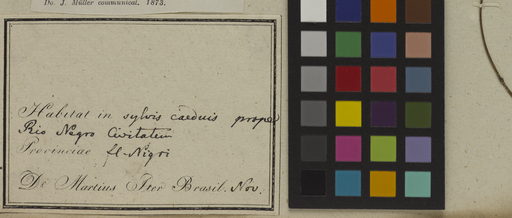 Dr. J. Müller communicat. 1873.
Habitat in sylvis caeduis prope
Rio Negro Civitatem
Provinciae fl-Nigri
De Martius Iter Brasil. Nov.